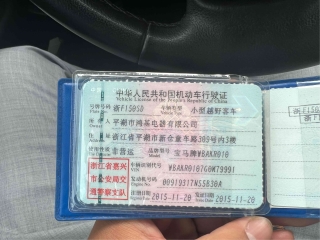 中华人民共和国机动车行驶证
Vehicle License of the People's Republic of China
号牌号码 浙F15050 车辆类型 小型越野客车
所有人 平湖市鸿基电器有限公司
住址 浙江省平湖市新仓童车路389号内3楼
使用性质 非营运 品牌型号 宝马牌WBAKR010
浙江省嘉兴
市公安局交
通警察支队
车辆识别代号 WBAKR0107G0M79991
发动机号码 00919317N55B30A
注册日期 2015-11-20 发证日期 2015-11-20